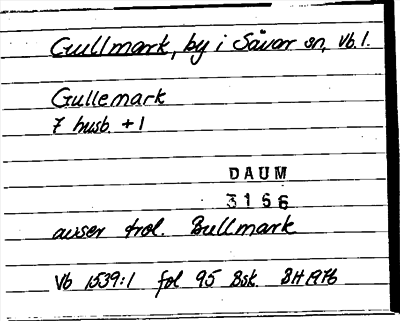 Gullmark, by i Sävar sn, Vb. l.
Gullemark
7 husb. + 1
DAUM
3156
avser trol. Bullmark
Vb 1539:1 fol 95 Bsk. BH 1976